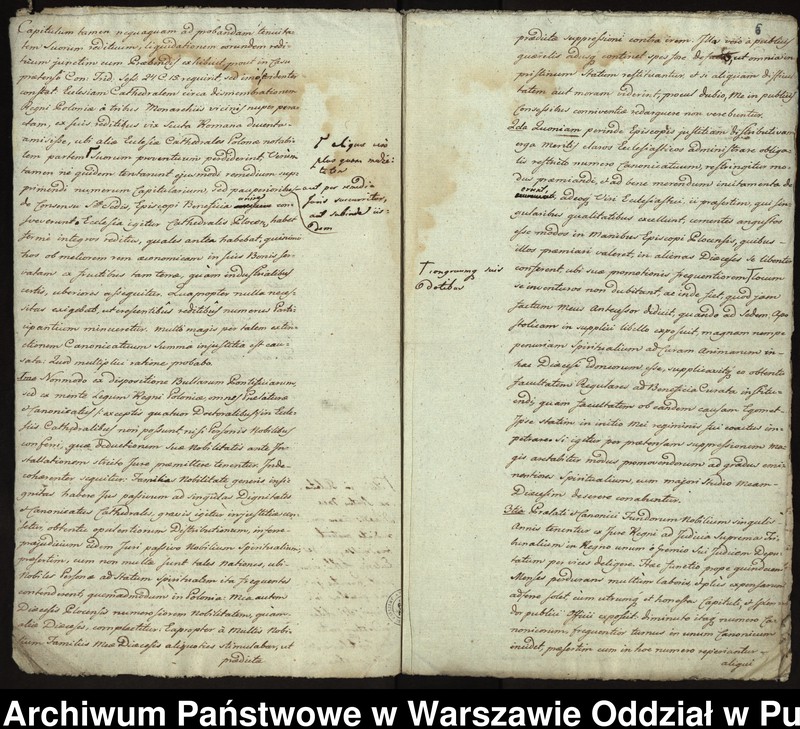 Capitulum tamen nequaquam ad probandam tenuita-
tem suorum redituum, liquidationem eorundem redi-
tuum junctim cum Probandis exhibuit, prout in Casu
prætenso Con: Trid: Sess: 24 C. 15 requirit, sed
constat Ecclesiam Cathedralem circa dismembrationem
Regni Poloniæ à tribus Monarchiis vicinis nuper perac-
tam, ex suis reditibus vix Scuta Romana ducenta
amisisse, ubi aliæ Ecclesiæ Cathedrales Polonæ notabi-
lem partem Suorum proventuum perdiderunt. Verum
tamen ne quidem tentarunt ejusmodi remedium sup-
primendi numerum Capitularium, sed pauperioribus
de Consensu Stæ Sedis, Episcopi Beneficia unire con-
sveverunt. Ecclesia igitur Cathedralis Plocen: habet
fermè integros reditus, quales antea habebat, quinimo
hos ob meliorem rem œconomicam in suis Bonis ser-
vatam ex fructibus tam terræ, quàm industrialibus
certis, uberiores assequitur. Quapropter nulla neces-
sitas exigebat, ut crescentibus reditibus numerus Parti-
cipantium minueretur. Multò magis per talem extin-
ctionem Canonicatuum Summa injustitia est cau-
sata: Quod multiplici ratione probabo
1mo Nonmodo ex dispositione Bullarum Pontificiarum,
sed ex mente Legum Regni Poloniæ, omnes Prælaturæ
et Canonicatus (:exceptis quatuor Doctoralibus:) in Eccle-
siis Cathedralibus non possunt, nisi Personis Nobilibus
conferri, qua deductionem Suæ Nobilitatis ante In-
stallationem stricto Jure præmittere tenentur. Inde
cohærenter sequitur. Familias Nobilitate generis insi-
gnitas habere Jus passivum ad singulas Dignitates
et Canonicatus Cathedrales, gravis igitur injustitia cen-
setur, obtentu opulentiorum Distributionum, inferre
præjudicium eidem Juri passivo Nobilium Spiritualium,
præsertim, cum non multæ sunt tales nationes, ubi
Nobiles Personæ ad Statum Spiritualem ita frequentes
contenderent quemadmodum in Polonia: Mea autem
Diœcesis Plocensis numerosiorem Nobilitatem, quàm
aliæ Diœceses, complectitur. Eapropter à Multis Nobi-
lium Familiis Meæ Diœcesis aliquoties stimulabar, ut
prædictæ
Γ aliqua verò
plus quam medie-
tatem
aut per
suis succurritur,
aut subinde iis-
dem
6
prædictæ suppressioni contra irem. Illas verò à publicis
querelis adusq continet spes ut omnia in
pristinum Statum restituantur, et si aliquam difficul-
tatem aut moram viderint, procul dubio, Me in publicis
Consessibus conniventiæ redarguere non verebuntur.
2do Quoniam perinde Episcopis justitiam distributivam
erga Meritis claros Ecclesiasticos administrare obliga-
tis restricto numero Canonicatuum, restringitur mo-
dus præmiandi, et ad bene merendum incitamenta de-
adeoq Viri Ecclesiastici, ii præsertim, qui sin-
gularibus qualitatibus excellunt, cernentes angustos
esse modos in Manibus Episcopi Plocensis, quibus
illos præmiari valeret, in alienas Diœceses se libenter
conferent ubi suæ promotionis frequentiorem Γ locum
se inventuros non dubitant, ac inde fiet, quod jam
factum Meus Antecessor dedicit, quando ad Sedem Apo-
stolicam in supplici libello exposuit, magnam nempe
penuriam Spiritualium ad Curam Animarum in-
hac Diœcesi idoneorum esse, supplicavitq pro obtenta
facultatem Regulares ad Beneficia Curata institu-
endi, quam facultatem ob eandem causam Egomet
Ipse statim in initio Mei regiminis fui coactus im-
petrare. Si igitur per prætensam suppressionem ma-
gis arctabitur modus promovendorum ad gradus emi-
nentiores Spiritualium, cum majori studio Meam
Diœcesim deserere conabuntur.
3tio Prælati et Canonici Fundorum Nobilium singulis
Annis tenentur ex Jure Regni ad Judicia Suprema Tri-
bunalium in Regno unum è gremio Sui Judicem Depu-
tatum per vices deligere. Hæc functio propè quindecim
Menses perdurans multùm laboris et plùs expensarum
adferre solet cum utrumq et honestas Capituli, et splen-
dor publici Officii exposcit: diminuto itaq numero Ca-
nonicorum, frequentior turnus in unum Canonicum
incidet, præsertim cum in hoc numero reperiantur
aliqui
Γ congruumq suis
dotibus
Archiwum Państwowe w Warszawie Oddział w Pu